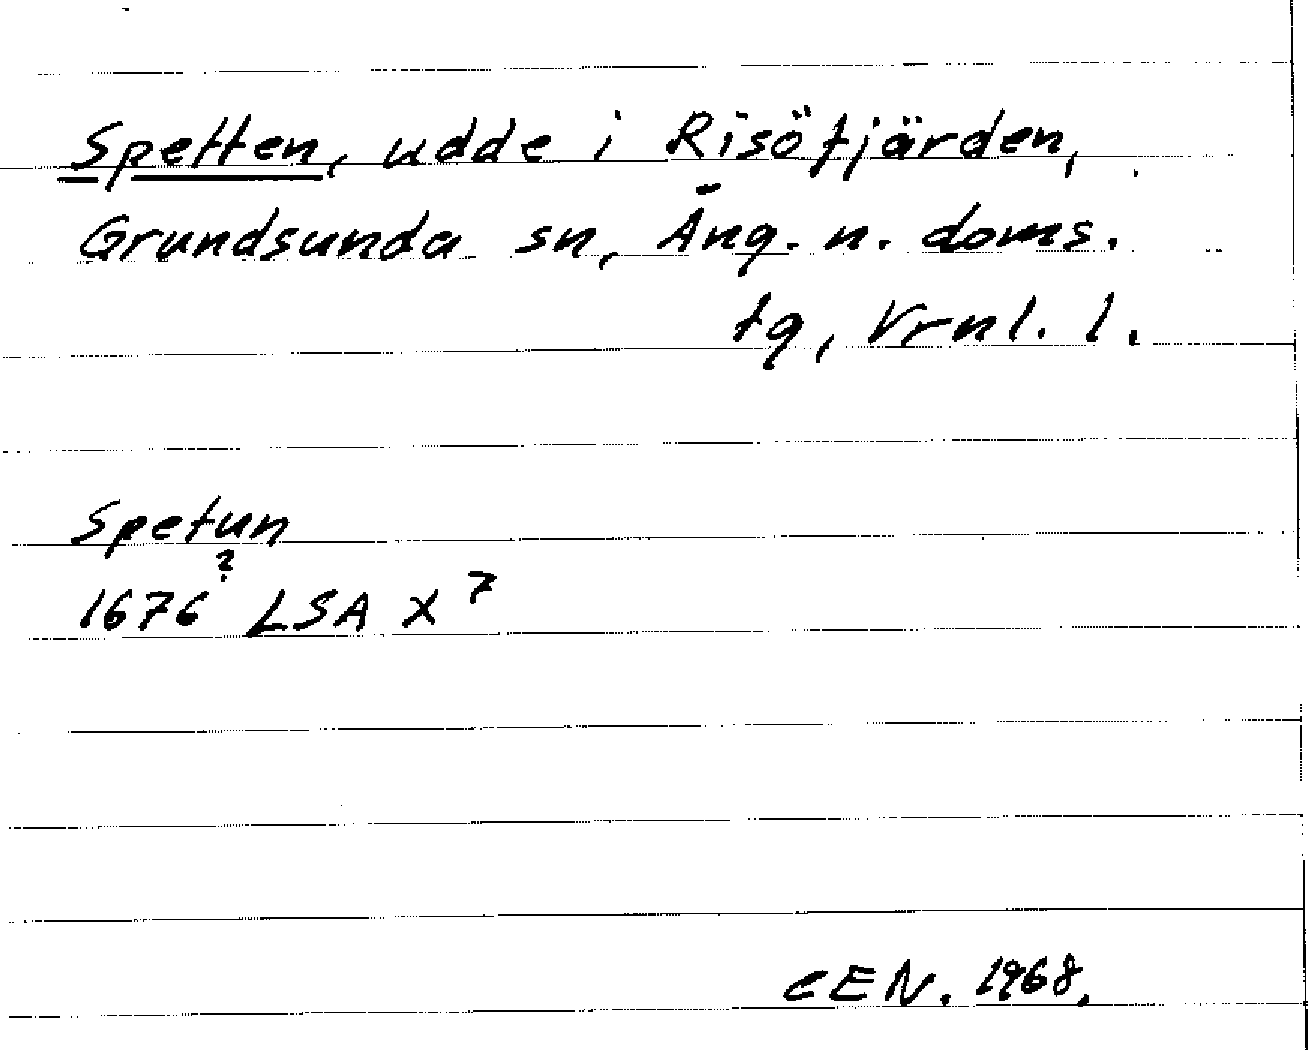 Spetten, udde i Risöfjärden,
Grundsunda sn, Äng. n. doms.
tg, Vrnl. l.
Spetun
1676? LSA X 7
CEN. 1968.